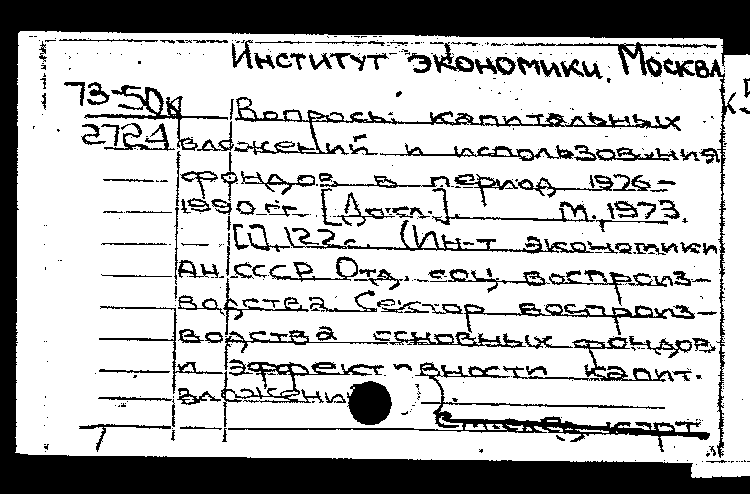 Институт экономики, Москва
73-50к
2724
Вопросы капитальных
вложений и использования
фондов в период 1976-
1990 гг. [Докл.]. М., 1973.
[I], 122 с. (Ин-т экономики
АН СССР. Отд. соц. воспроиз-
водства. Сектор воспроиз-
водства основных фондов
и эффективности капит.
вложений).
См. след. карт